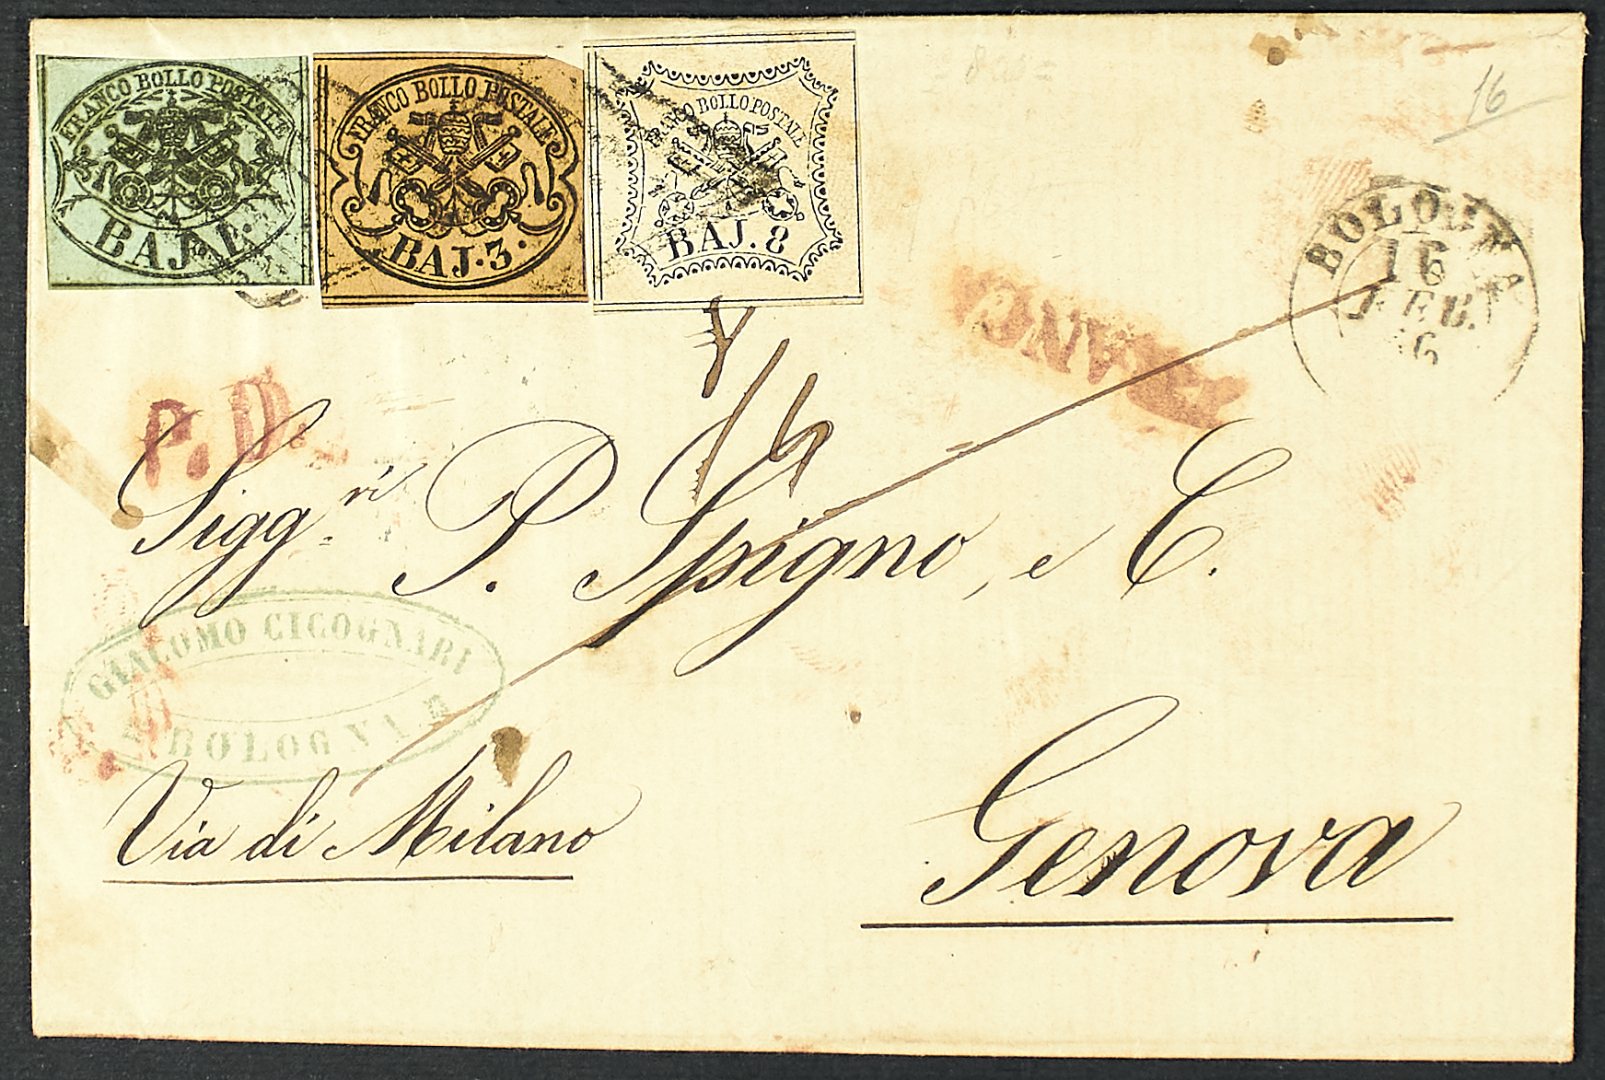 FRANCO BOLLO POSTALE
BAJ.1.
FRANCO BOLLO POSTALE
BAJ.3.
FRANCO BOLLO POSTALE
BAJ.8
16
BOLOGNA
16
FEB.
6
FRANCO
P.D.
Sigg.ri P. Spigno, e C.
GIACOMO CICOGNARI
BOLOGNA
Via di Milano
Genova